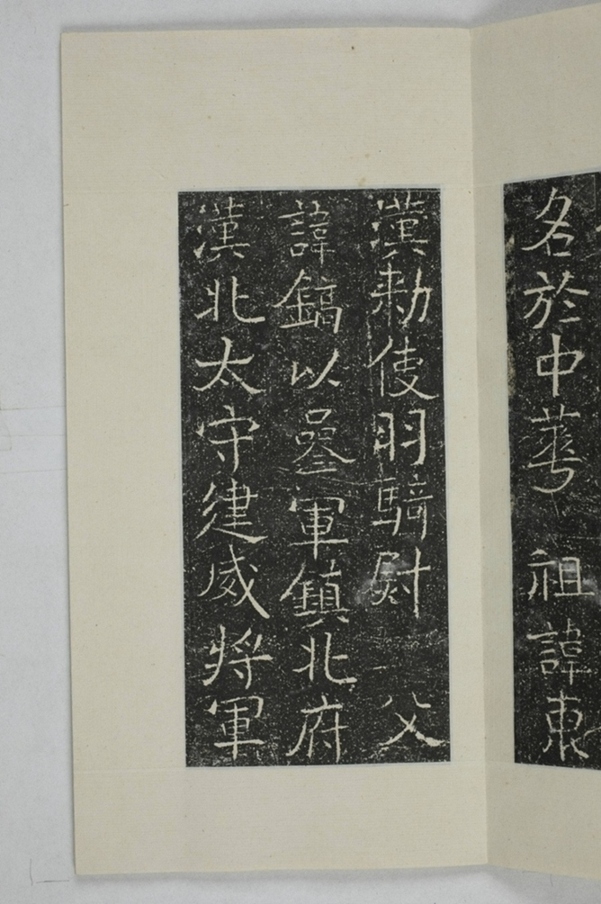 名於中華 祖諱東
漢勑使羽騎尉 父
諱鎬以叅軍鎮北府
漢北太守建威將軍